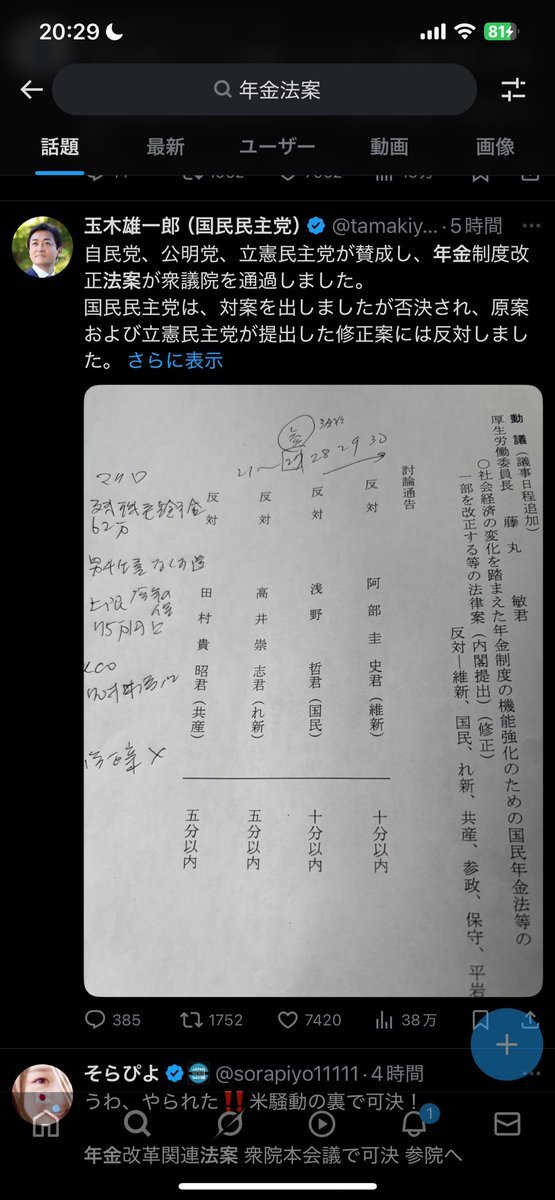 20:29
81
年金法案
話題
最新
ユーザー
動画
画像
玉木雄一郎（国民民主党） @tamakiy… · 5時間
自民党、公明党、立憲民主党が賛成し、年金制度改
正法案が衆議院を通過しました。
国民民主党は、対案を出しましたが否決され、原案
および立憲民主党が提出した修正案には反対しまし
た。 さらに表示
動議（議事日程追加）
厚生労働委員長 藤丸 敏君
〇社会経済の変化を踏まえた年金制度の機能強化のための国民年金法等の
一部を改正する等の法律案（内閣提出）（修正）
反対―維新、国民、れ新、共産、参政、保守、平岩
討論通告
反対 阿部圭史君（維新） 十分以内
反対 浅野 哲君（国民） 十分以内
反対 高井崇志君（れ新） 五分以内
反対 田村貴昭君（共産） 五分以内
21～27 28 29 30
マクロ
62万
385
1752
7420
38万
そらぴよ @sorapiyo11111 · 4時間
うわ、やられた‼️米騒動の裏で可決！
1
年金改革関連法案 衆院本会議で可決 参院へ